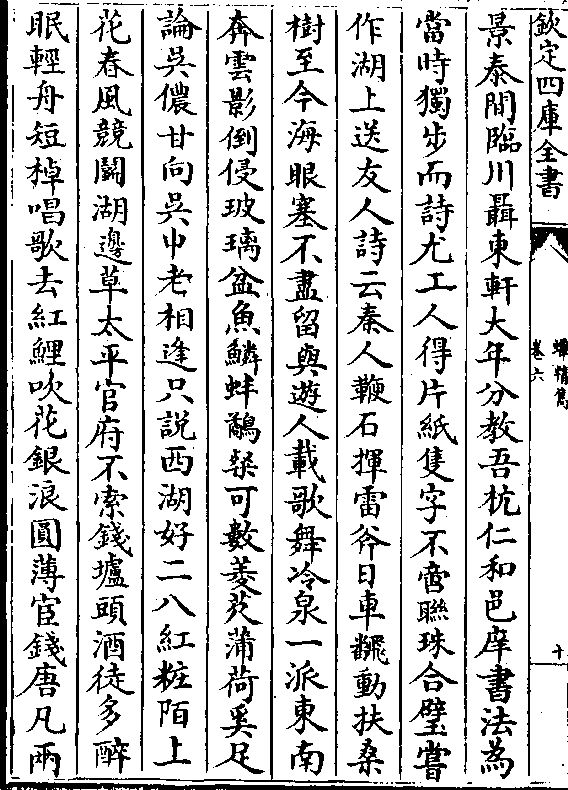 欽定四庫全書
蟫精雋
卷六
十
景泰間臨川聶東軒大年分教吾杭仁和邑庠書法為
當時獨步而詩尤工人得片紙隻字不啻聯珠合璧嘗
作湖上送友人詩云秦人鞭石揮雷斧日車飜動扶桑
樹至今海眼塞不盡留與遊人載歌舞冷泉一派東南
奔雲影倒侵玻璃盆魚鱗蚌鷸粲可數菱芡蒲荷奚足
論吳儂甘向吳中老相逢只說西湖好二八紅粧陌上
花春風競鬭湖邊草太平官府不索錢壚頭酒徒多醉
眠輕舟短棹唱歌去紅鯉吹花銀浪圓薄宦錢唐凡兩